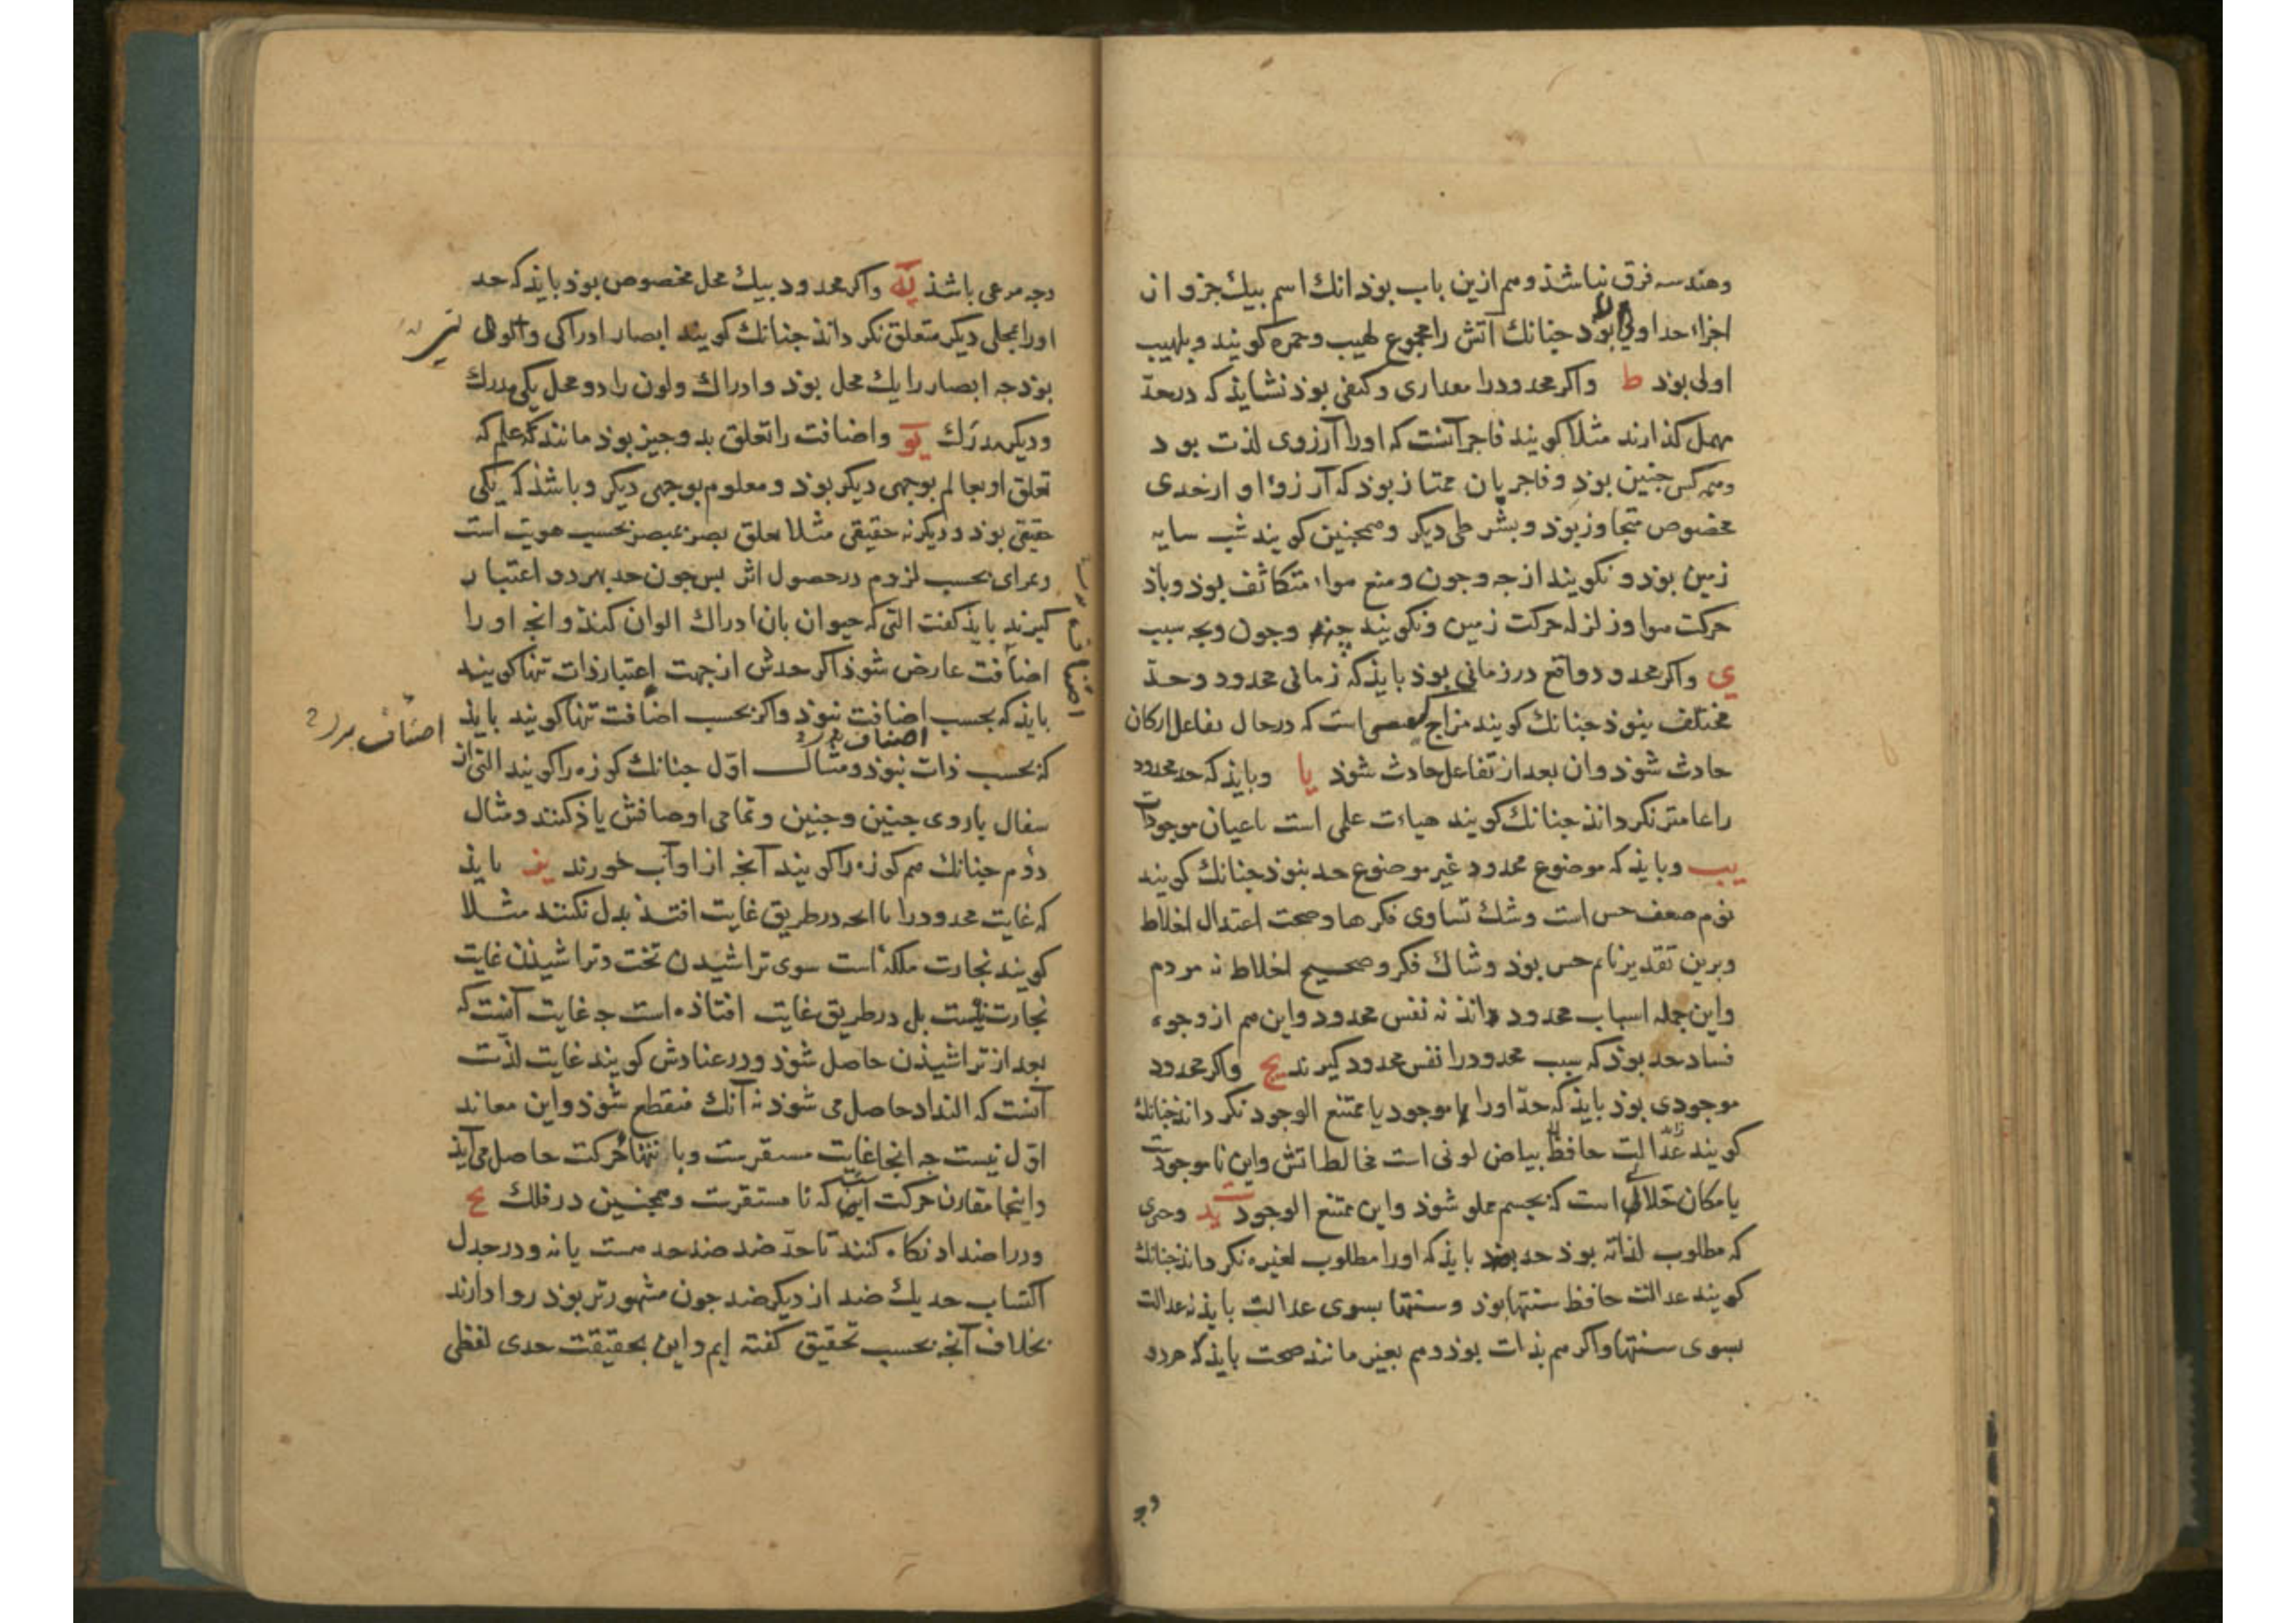 وهندسه فرق نباشذ وهم ازین باب بوذ انك اسم بیك جزو از
اجزاء حد اولی بوذ جنانك آتش را مجموع لهیب وجمره کویند و بلهیب
اولی بوذ ط واکر محدود را مقداری وکیفی بوذ نشایذ که در حدّ
مهمل کذارند مثلا کویند فاجر آنست که اورا آرزوی لذت بود
وهمه کس جنین بوذ وفاجر بان ممتاز بوذ که آرزوء او از حدی
مخصوص متجاوز بوذ و بشرطی دیکر وهمجنین کویند شب سایه
زمین بوذ و نکویند از جه و جون ومنع هواء متکاثف بوذ وباذ
حرکت هوا وزلزله حرکت زمین ونکویند وجون وبجه سبب
ی واکر محدود واقع در زمانی بوذ بایذ که زمانی محدود وحدّ
مختلف نبوذ جنانك کویند مزاج است که در حال تفاعل ارکان
حادث شوذ وان بعد از تفاعل حادث شوذ یا وبایذ که حد محدود
را عامتر نکرداند جنانك کویند هیاءت علمی است باعیان موجودات
یب وبایذ که موضوع محدود غیر موضوع حد نبوذ جنانك کویند
نوم ضعف حس است وشك تساوی فکرها وصحت اعتدال اخلاط
وبرین تقدیر نایم حس بوذ وشاك فکر وصحیح اخلاط نه مردم
واین جمله اسباب محدود اند نه نفس محدود واین هم از وجوه
فساد حد بوذ که سبب محدود را نفس محدود کیرند یج واکر محدود
موجودی بوذ بایذ که حدّ اورا با موجود یا ممتنع الوجود نکرداند جنانك
کویند حافظ بیاض لونی است مخالط آتش واین ناموجودست
یا مکان خلائی است که بجسم مملو شوذ واین ممتنع الوجودست ید وجیزی
که مطلوب لذاته بوذ حد بایذ که اورا مطلوب لغیره نکرداند جنانك
کویند عدالت حافظ سنتها بوذ وسنتها بسوی عدالت بایذ نه عدالت
بسوی سنتها واکر هم بذات بوذ وهم بغیر مانند صحت بایذ که هردو
وجه
وجه مرعی باشذ یه واکر محدود بیك محل مخصوص بوذ بایذ که حد
اورا بمحلی دیکر متعلق نکرداند جنانك کویند ابصار ادراکی
بوذ جه ابصار را یك محل بوذ وادراك ولون را دو محل یکی مدرك
ودیکر مدرَك یو واضافت را تعلق بدو جیز بوذ مانند علم که
تعلق او بعالم بوجهی دیکر بوذ ومعلوم بوجهی دیکر وباشذ که یکی
حقیقی بوذ ودیکر نه حقیقی مثلا تعلق بصر بمبصر بحسب هویت است
وبرای بحسب لزوم در حصول اثر بس جون حد بهر دو اعتبار
کیرند بایذ کفت التی که حیوان بان ادراك الوان کنذ وانجه اورا
اضافت عارض شوذ اکر حدش از جهت اعتبار ذات تنها کویند
بایذ که بحسب اضافت نبوذ واکر بحسب اضافت تنها کویند بایذ
که بحسب ذات نبوذ ومثال اوّل جنانك کوزه را کویند التی از
سفال باروی جنین وجنین وتمامی اوصافش یاذ کنند ومثال
دوم جنانك هم کوزه را کویند آنجه از او آب خورند یز بایذ
که غایت محدود را با انجه در طریق غایت افتذ بدل نکنند مثلا
کویند نجارت ملکه است سوی تراشیدن تخت وتراشیذن غایت
نجارت نیست بل در طریق غایت افتاذه است جه غایت آنست که
بعد از تراشیذن حاصل شوذ ودر عنادش کویند غایت لذّت
آنست که التذاذ حاصل می شوذ نه آنك منقطع شوذ واین معاند
اوّل نیست جه انجا غایت مستقرست وبا انتهاء حرکت حاصل می آیذ
واینجا مقارن حرکت است که نا مستقرست وهمجنین در فلك یح
ودر اضداد نکاه کنند تا حدّ ضد ضد حد هست یا نه ودر جدل
اکتساب حد یك ضد از دیکر ضد جون مشهورتر بوذ روا دارند
بخلاف آنجه بحسب تحقیق کفته ایم واین بحقیقت حدی لفظی